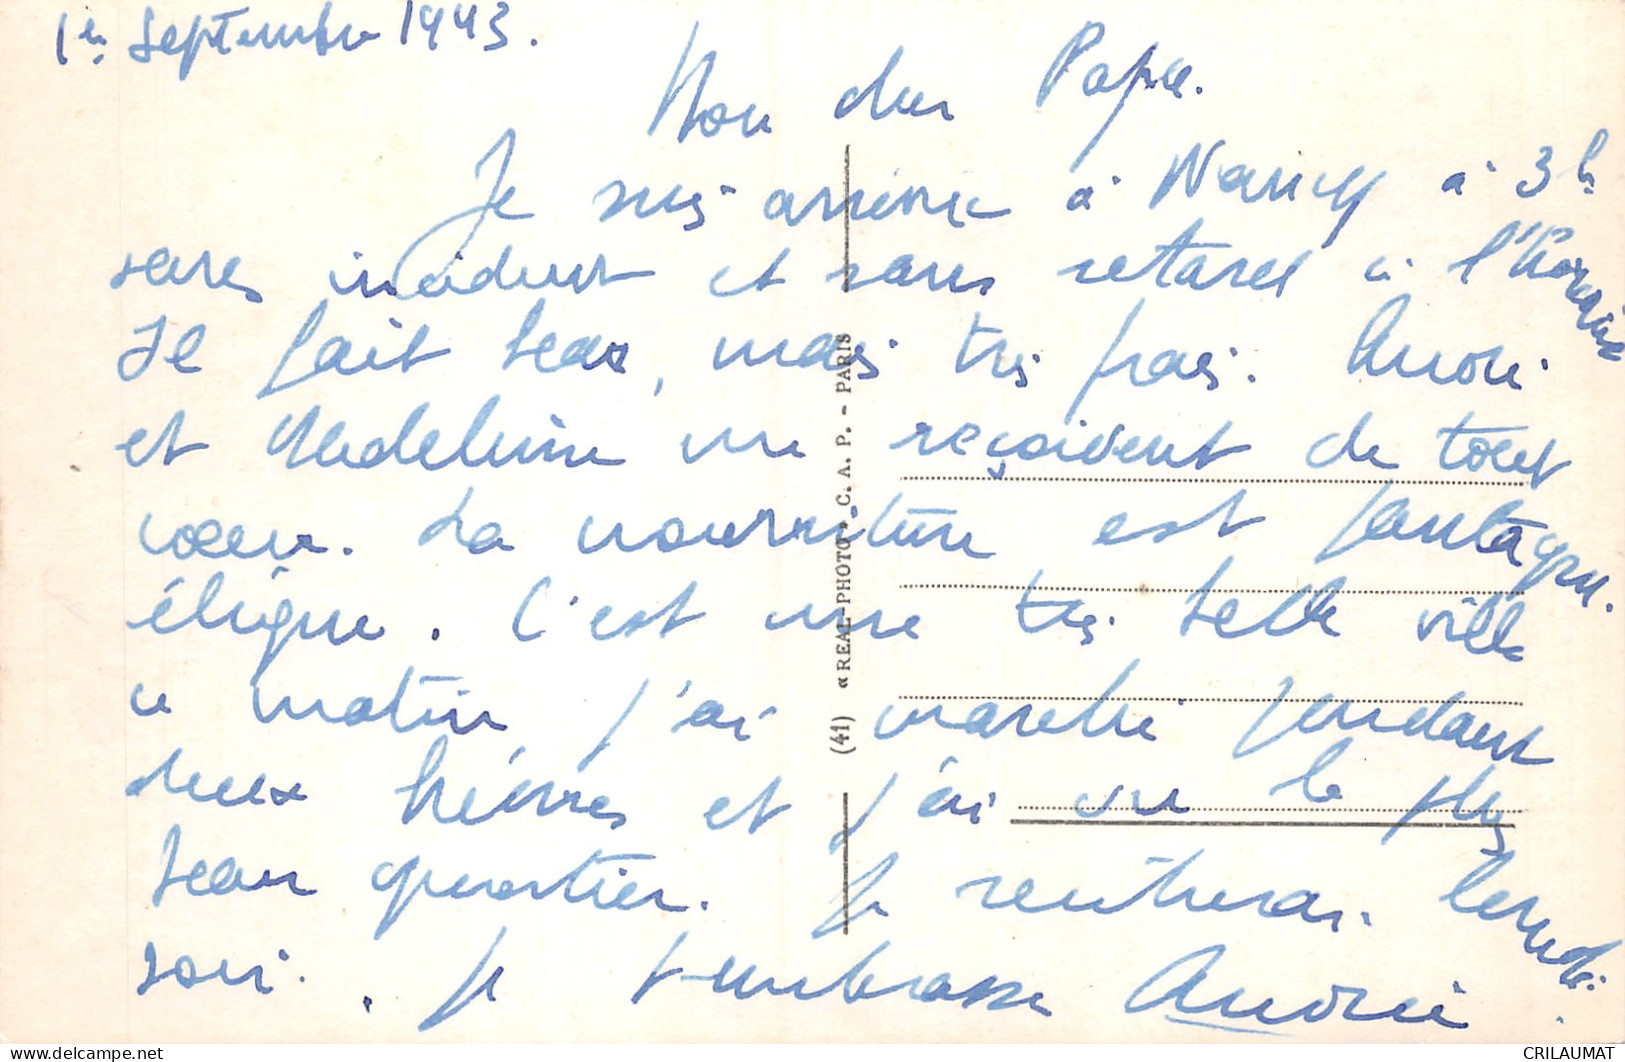 1er Septembre 1943.
Mon cher Papa.
Je suis arrivée à Nancy à 3h
sans incident et sans retard à l'horaire
Il fait beau, mais très frais. André
et Madeleine me reçoivent de tout
coeur. La nourriture est pantagru-
élique. C'est une très belle ville
ce matin j'ai marché pendant
deux heures et j'ai vu le plus
beau quartier. Je rentrerai lundi
soir. Je t'embrasse Andrée
(41) «REAL-PHOTO» C. A. P. - PARIS
CRILAUMAT